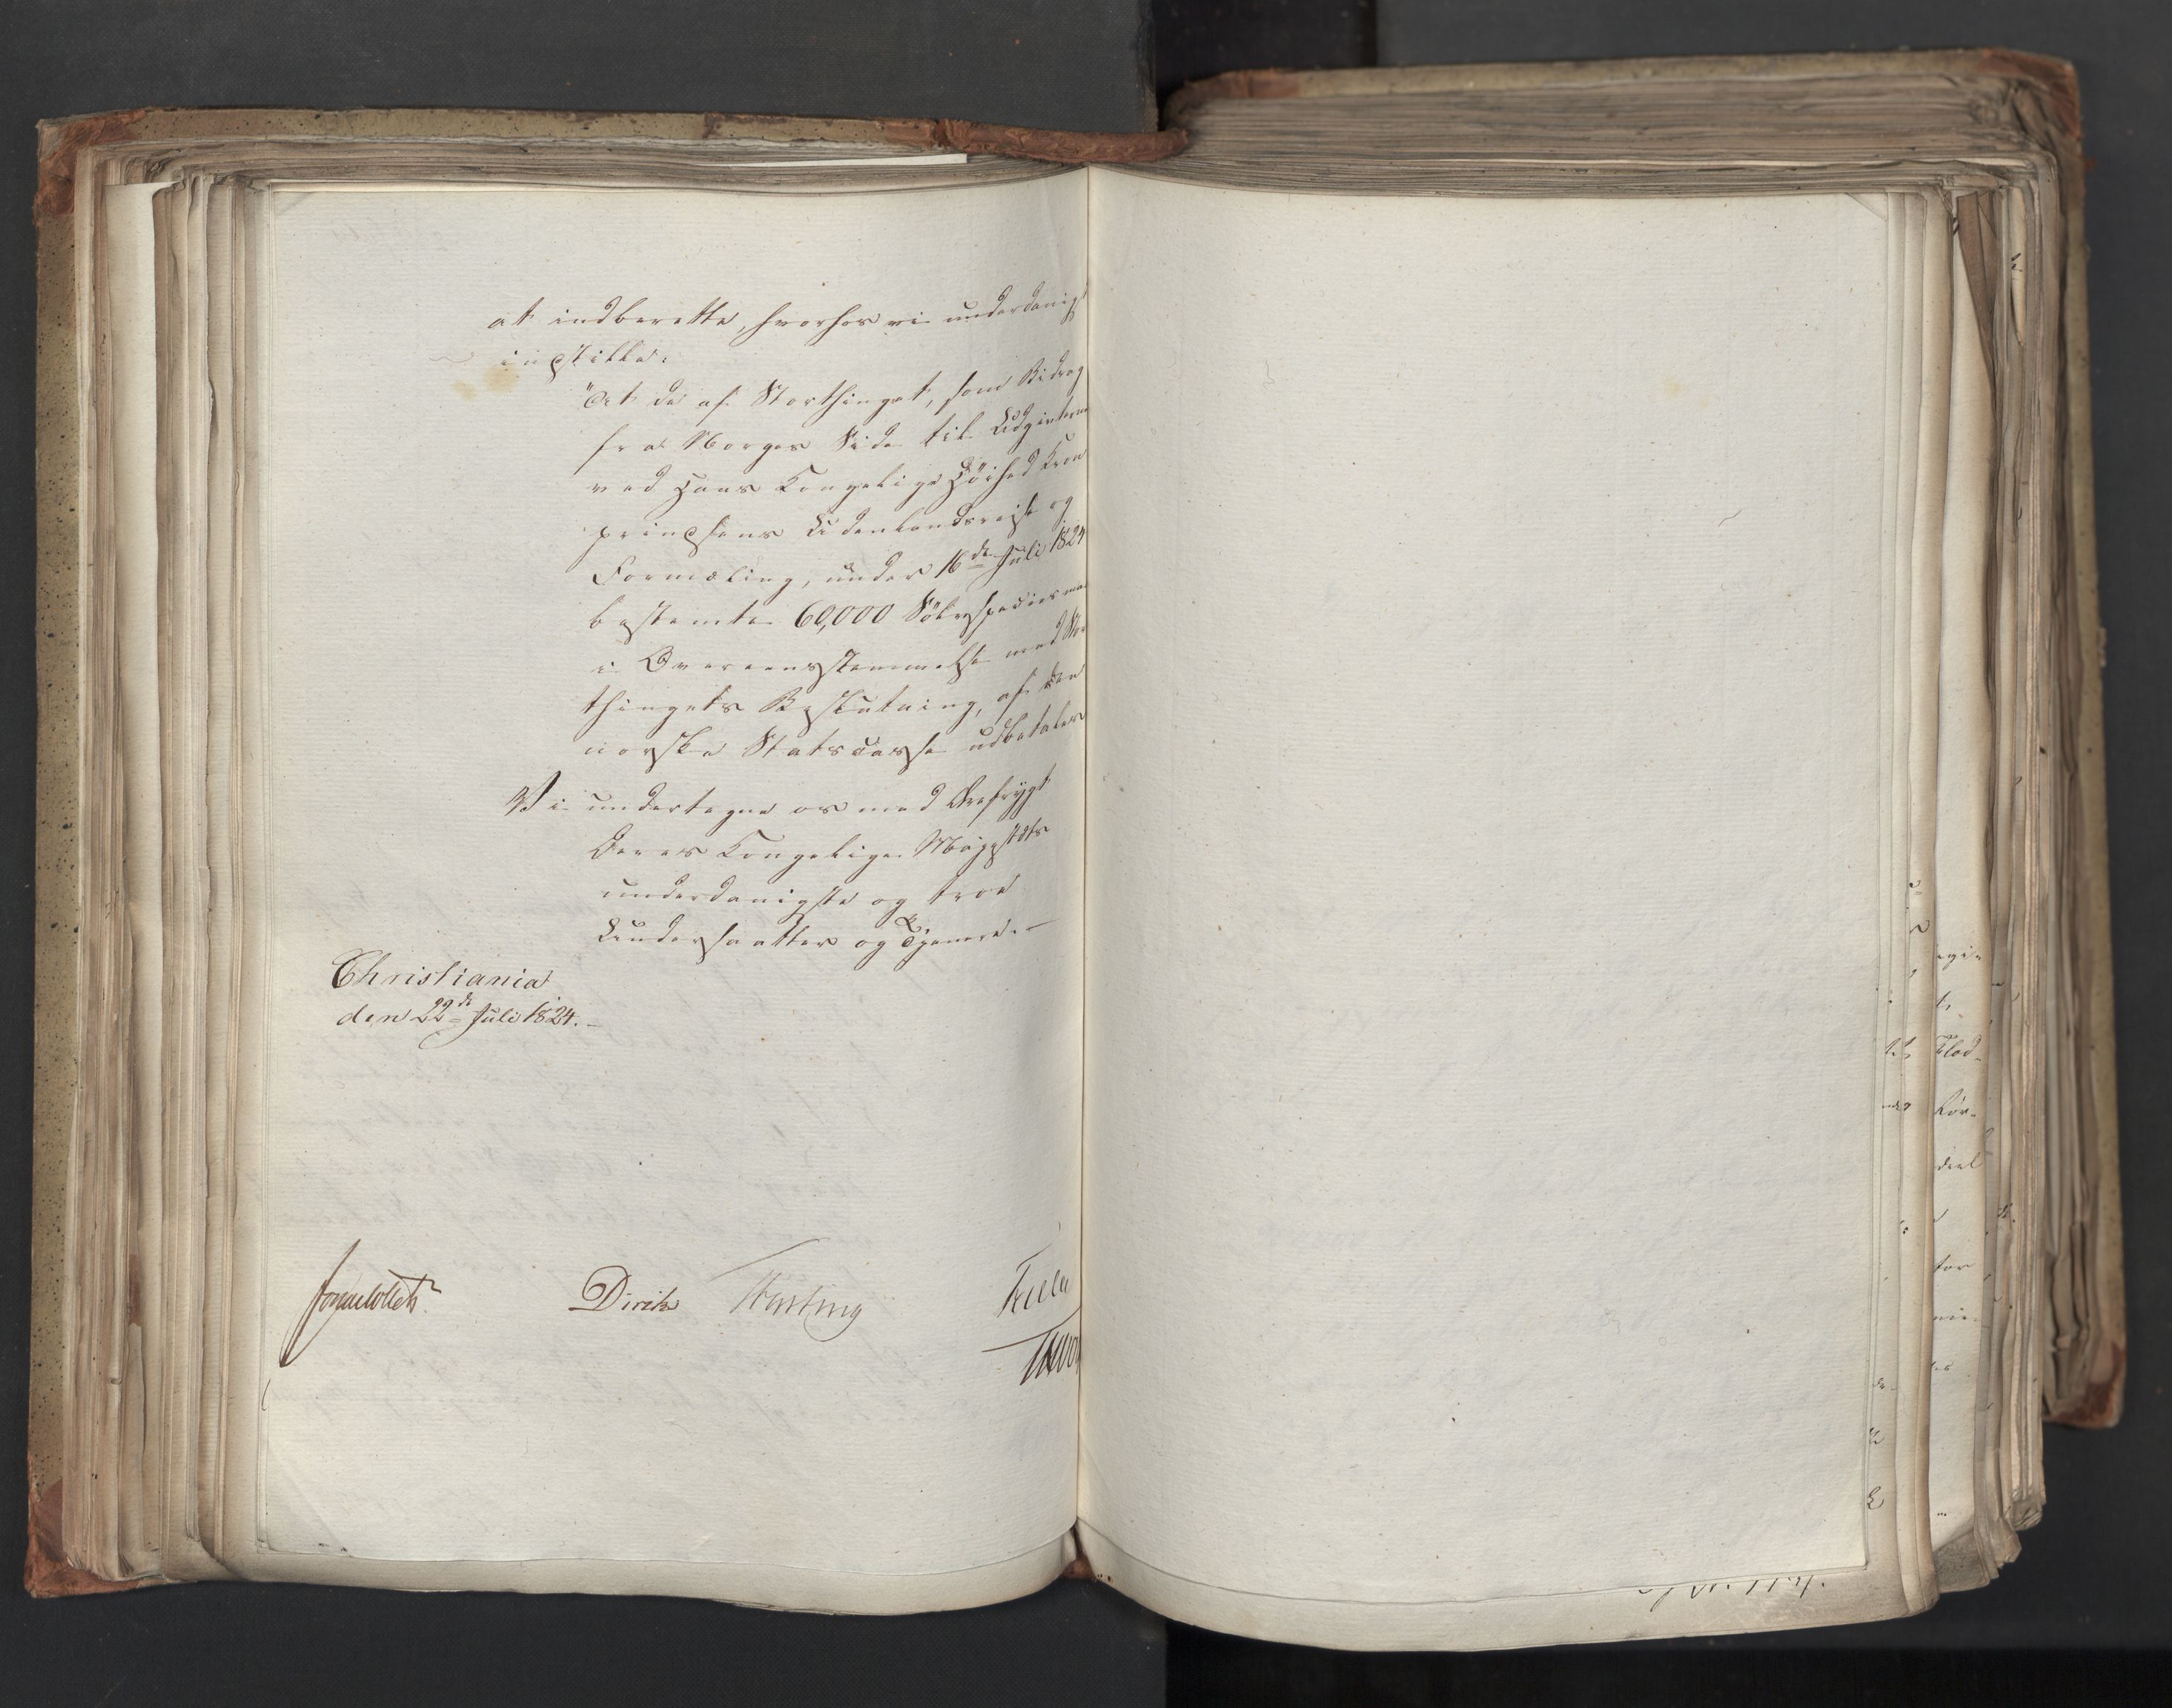 at indberette, hvorhos vi underdanigst
indstille:
"At de af Storthinget, som Bidrag
fra Norges Side til Udgifterne
ved Hans Kongelige Höihed Kron
prindsens Udenlandsreise og
Formæling, under 16de Juli 1824
bestemte 60,000 Sölvspecies maa
i Overeensstemmelse med Stor
thingets Beslutning, af den
norske Statscasse udbetales
Vi undertegne os med Ærefrygt
Deres Kongelige Majestæts
underdanigste og troe
Undersaatter og Tjenere. —
Christiania
den 22de Juli 1824. —
Collett
Diriks